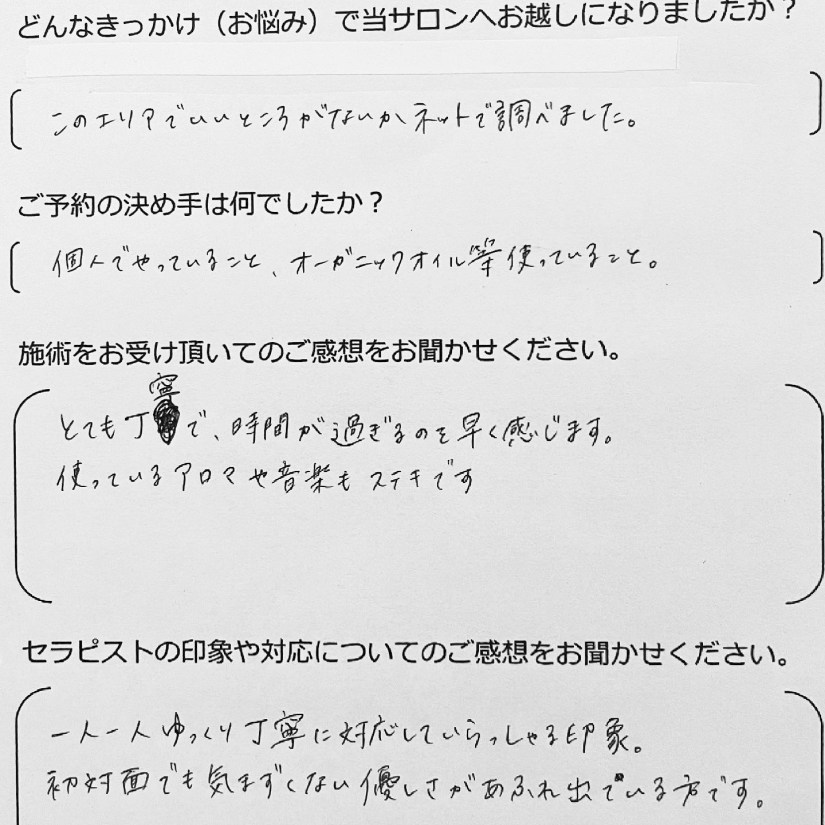 どんなきっかけ（お悩み）で当サロンへお越しになりましたか？
このエリアでいいところがないかネットで調べました。
ご予約の決め手は何でしたか？
個人でやっていること、オーガニックオイル等使っていること。
施術をお受け頂いてのご感想をお聞かせください。
とても丁寧で、時間が過ぎるのを早く感じます。
使っているアロマや音楽もステキです
セラピストの印象や対応についてのご感想をお聞かせください。
一人一人ゆっくり丁寧に対応していらっしゃる印象。
初対面でも気まずくない優しさがあふれ出ている方です。